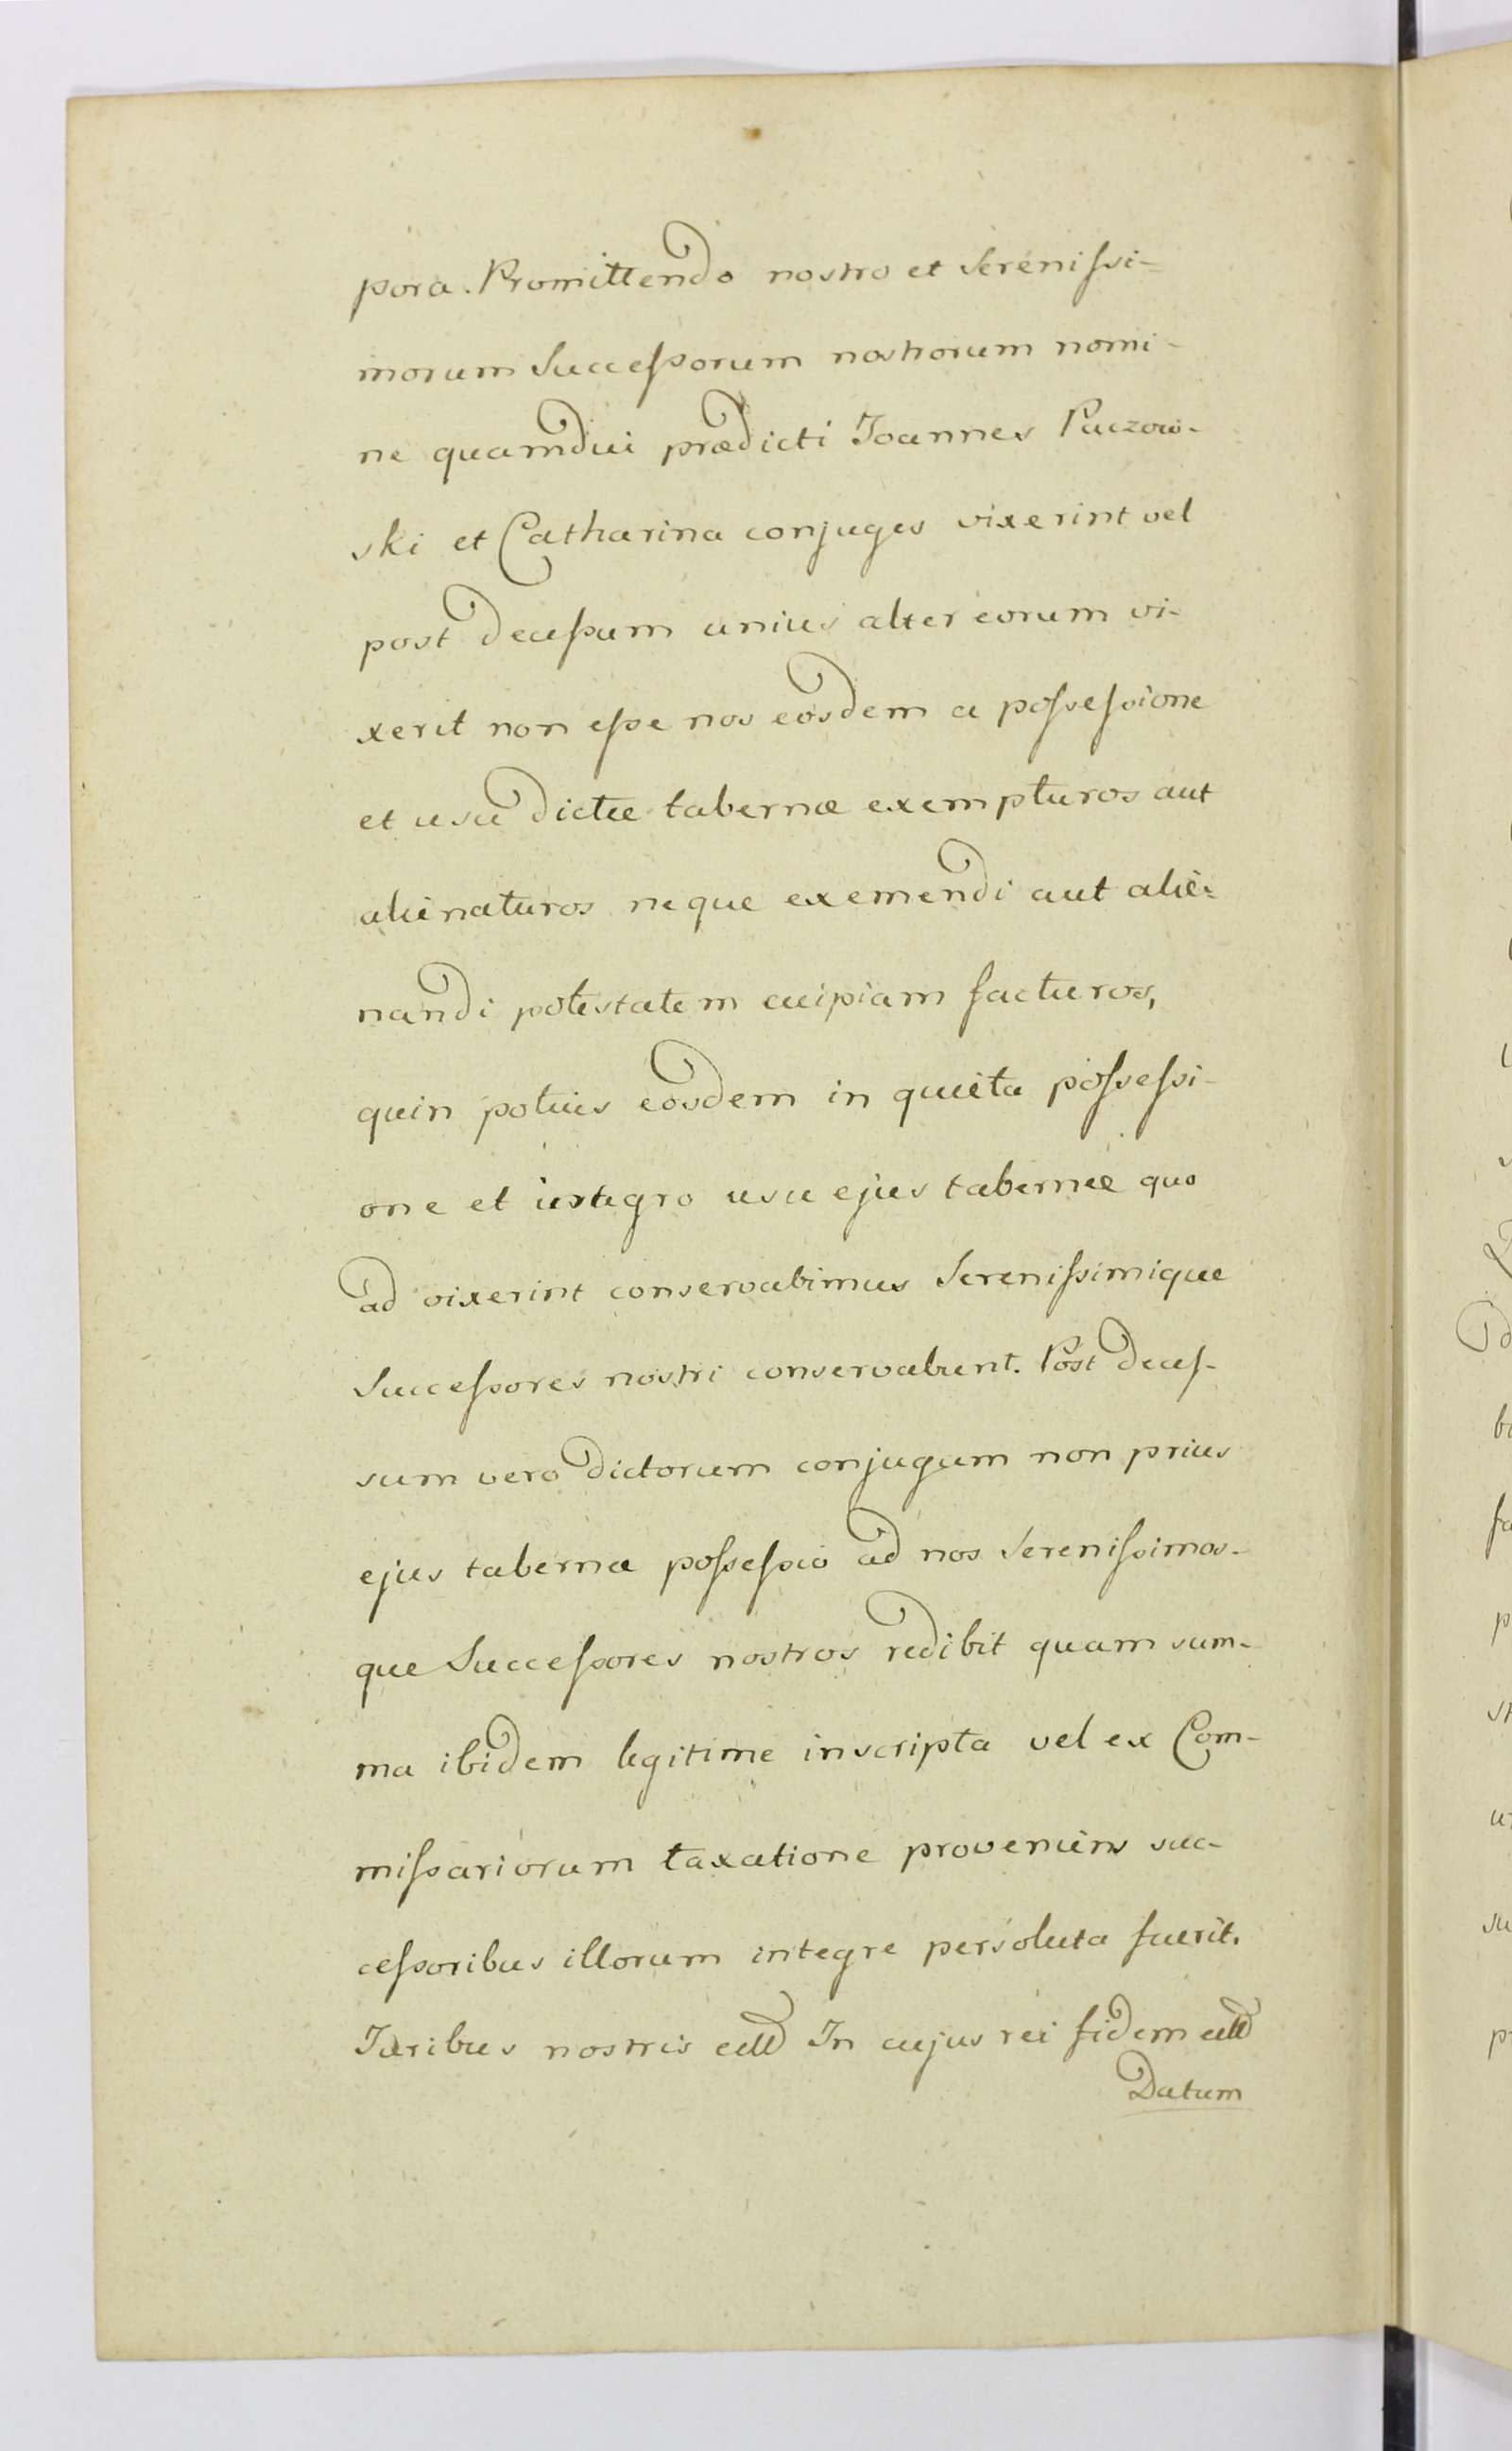 pora. Promittendo nostro et Serenissi-
morum Successorum nostrorum nomi-
ne quamdiu prædicti Joannes Puczow-
ski et Catharina conjuges vixerint vel
post decessum unius alter eorum vi-
xerit non esse nos eosdem a possessione
et usu dictæ tabernæ exempturos aut
alienaturos neque exemendi aut alie-
nandi potestatem cuipiam facturos,
quin potius eosdem in quieta possessi-
one et integro usu ejus tabernæ quo
ad vixerint conservabimus Serenissimique
Successores nostri conservabunt. Post deces-
sum vero dictorum conjugum non prius
ejus tabernæ possessio ad nos Serenissimos-
que Successores nostros redibit quam sum-
ma ibidem legitime inscripta vel ex Com-
missariorum taxatione proveniens suc-
cessoribus illorum integre persoluta fuerit.
Juribus nostris In cujus rei fidem
Datum